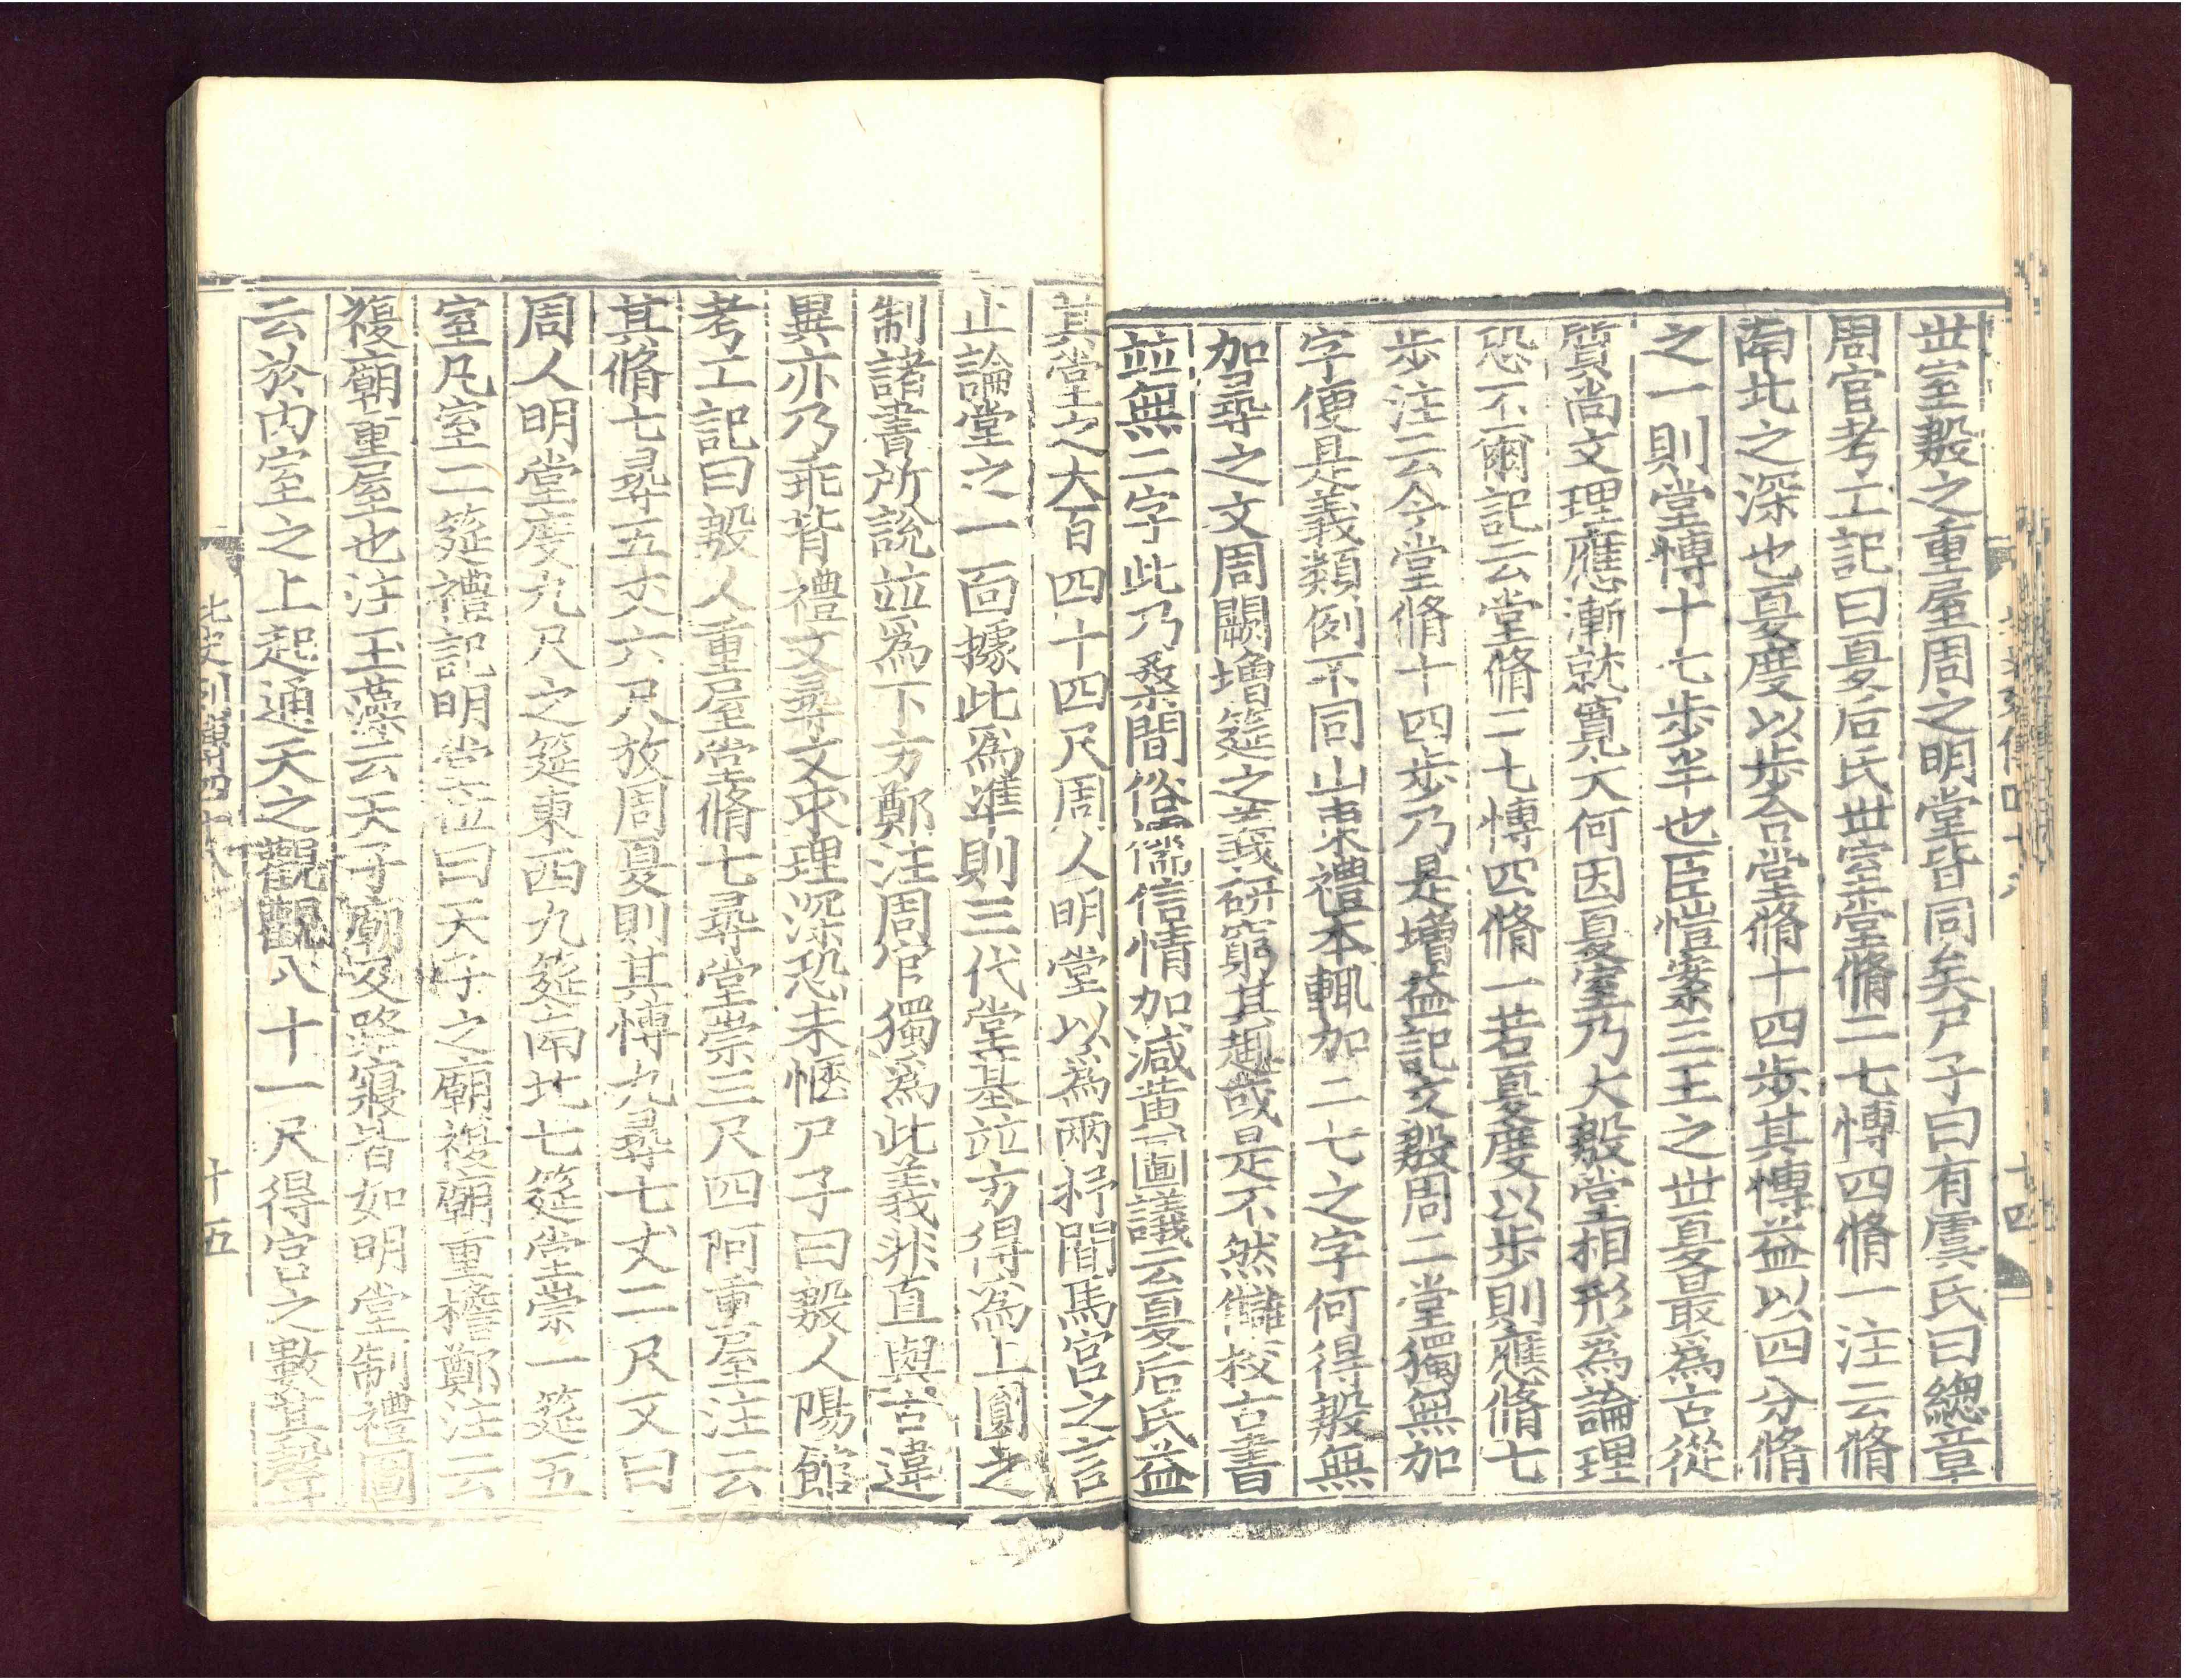 世室殷之重屋周之明堂皆同矣尸子曰有虞氏曰總章
周官考工記曰夏后氏世室堂脩二七博四脩一注云脩
南北之深也夏度以步合堂脩十四步其博益以四分脩
之一則堂博十七步半也臣愷案三王之世夏最爲古從
質尚文理應漸就寬大何因夏室乃大殷堂相形爲論理
恐不爾記云堂脩二七博四脩一若夏度以步則應脩七
步注云今堂脩十四步乃是增益記文殷周二堂獨無加
字便是義類例不同山東禮本輒加二七之字何得殷無
加尋之文周闕增筵之義研窮其趣或是不然讎校古書
並無二字此乃桑間俗儒信情加減黃圖議云夏后氏益
其堂之大百四十四尺周人明堂以爲兩杼間馬宮之言
止論堂之一面據此爲准則三代堂基並方得爲上圓之
制諸書所說並爲下方鄭注周官獨爲此義非直與古違
異亦乃乖背禮文尋文求理深恐未愜尸子曰殷人陽館
考工記曰殷人重屋堂脩七尋堂崇三尺四阿重屋注云
其脩七尋五丈六尺放周夏則其博九尋七丈二尺又曰
周人明堂度九尺之筵東西九筵南北七筵堂崇一筵五
室凡室二筵禮記明堂位曰天子之廟複廟重檐鄭注云
複廟重屋也注玉藻云天子廟及路寢皆如明堂制禮圖
云於內室之上起通天之觀觀八十一尺得宮之數其聲
北史列傳四十八
十五